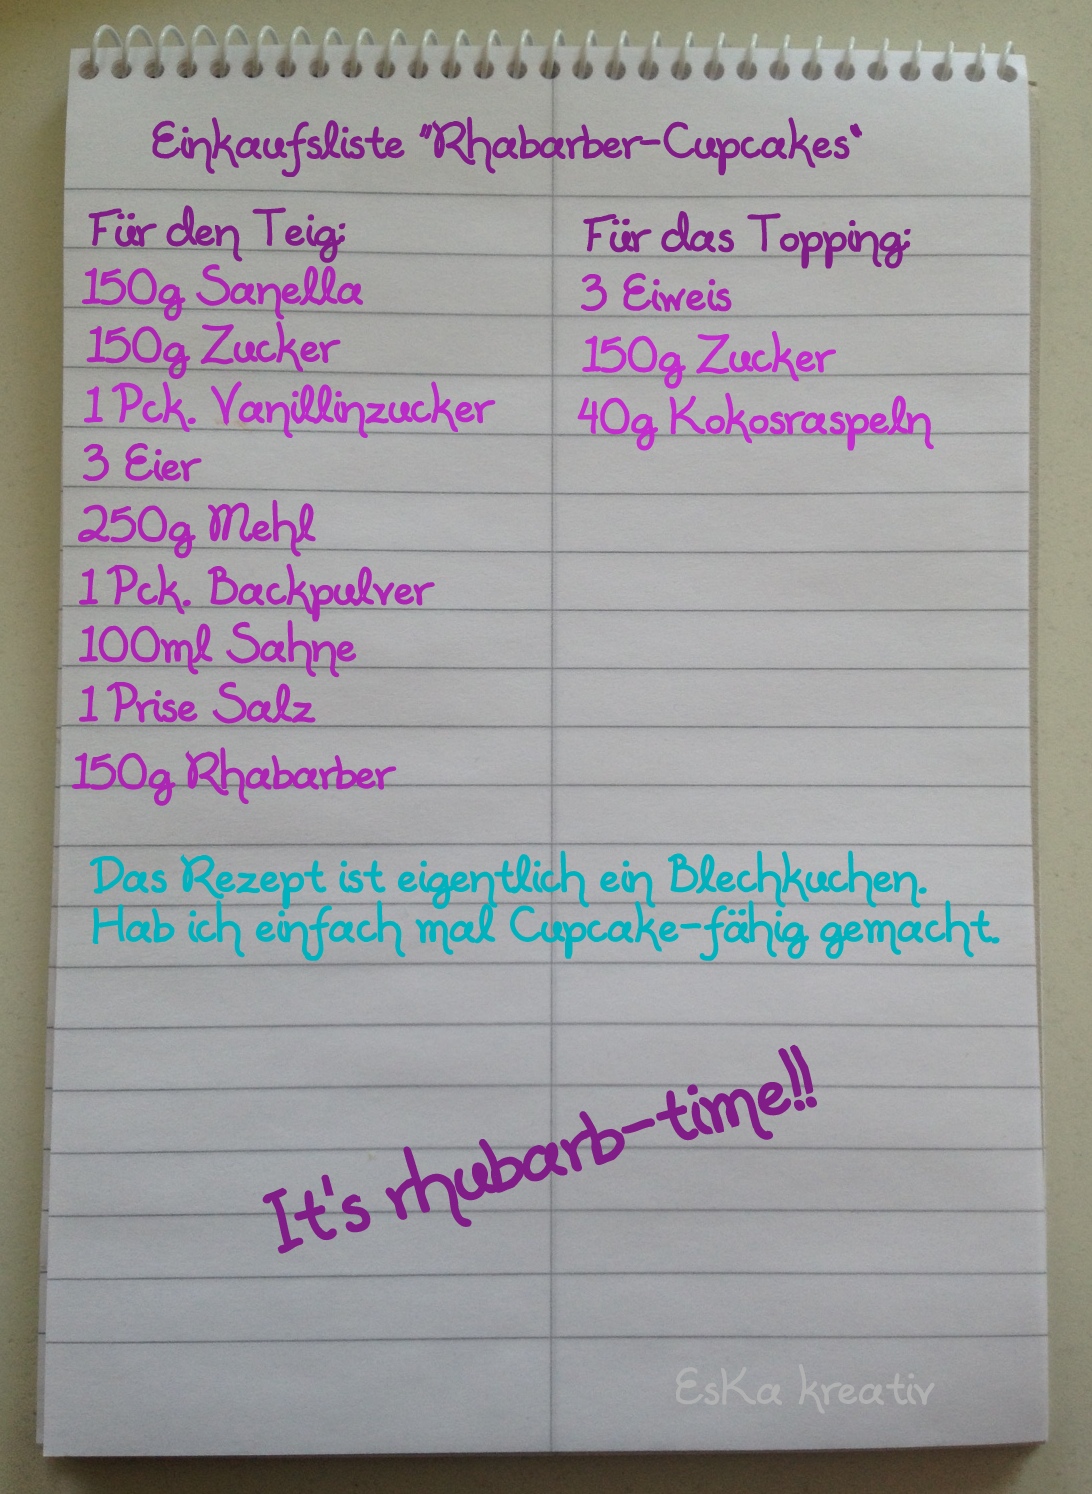 Einkaufsliste "Rhabarber-Cupcakes"
Für den Teig:
150g Sanella
150g Zucker
1 Pck. Vanillinzucker
3 Eier
250g Mehl
1 Pck. Backpulver
100ml Sahne
1 Prise Salz
150g Rhabarber
Für das Topping:
3 Eiweis
150g Zucker
40g Kokosraspeln
Das Rezept ist eigentlich ein Blechkuchen.
Hab ich einfach mal Cupcake-fähig gemacht.
It's rhubarb-time!!
EsKa kreativ